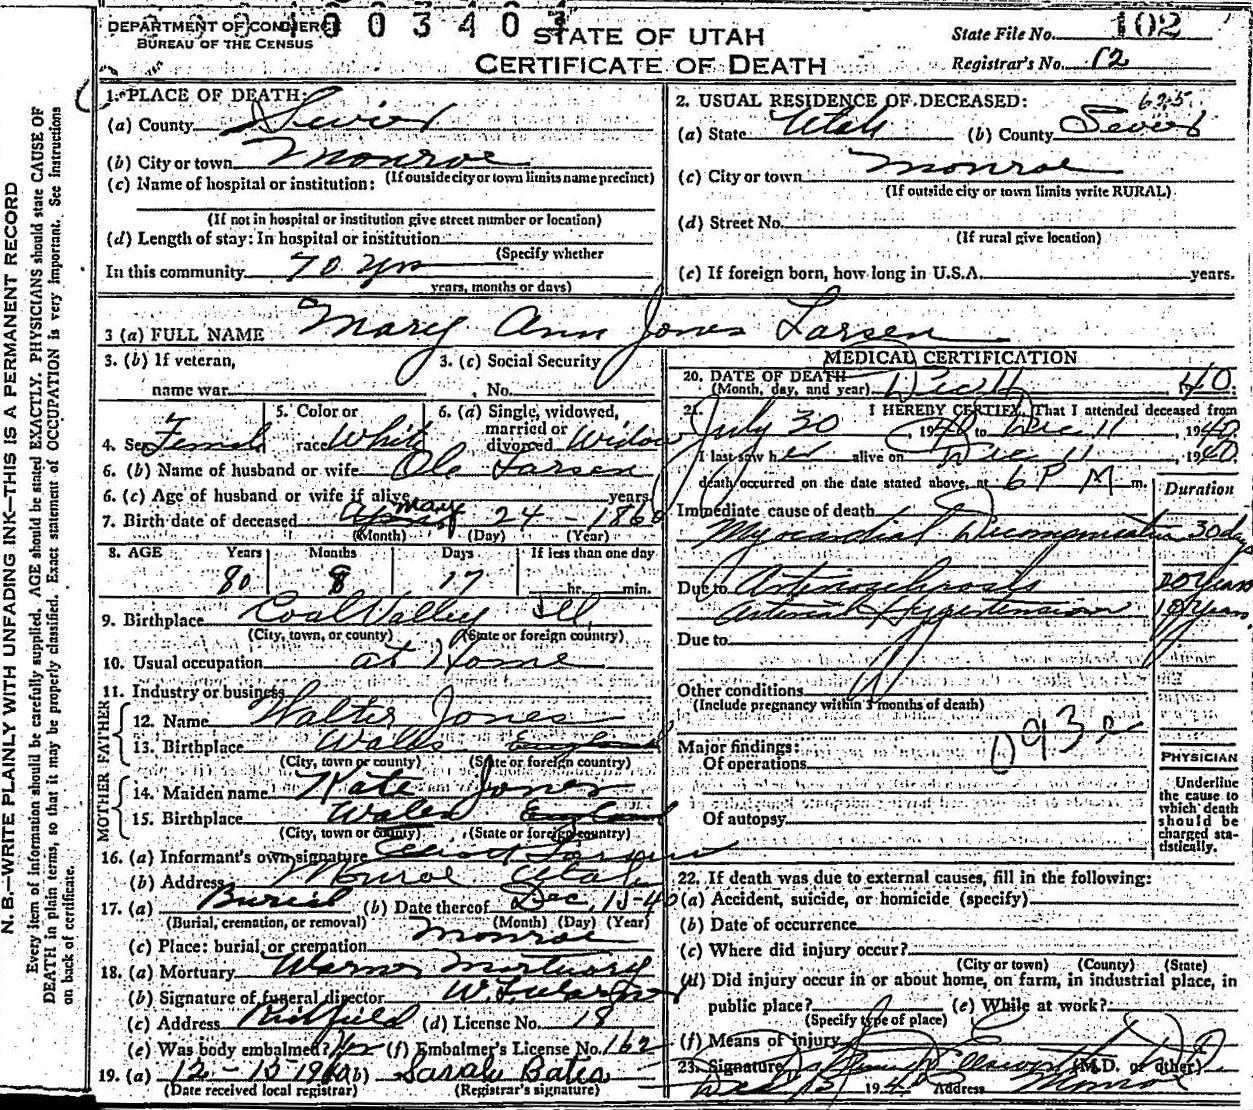 DEPARTMENT OF COMMERCE
BUREAU OF THE CENSUS
003401
STATE OF UTAH
CERTIFICATE OF DEATH
State File No. 102
Registrar's No. 12
N. B.—WRITE PLAINLY WITH UNFADING INK—THIS IS A PERMANENT RECORD
Every item of information should be carefully supplied. AGE should be stated EXACTLY. PHYSICIANS should state CAUSE OF
DEATH in plain terms, so that it may be properly classified. Exact statement of OCCUPATION is very important. See instructions
on back of certificate.
1. PLACE OF DEATH:
(a) County Sevier
(b) City or town Monroe
(If outside city or town limits name precinct)
(c) Name of hospital or institution:
(If not in hospital or institution give street number or location)
(d) Length of stay: In hospital or institution
(Specify whether
In this community 70 yrs
years, months or days)
2. USUAL RESIDENCE OF DECEASED: 625
(a) State Utah (b) County Sevier
(c) City or town Monroe
(If outside city or town limits write RURAL)
(d) Street No.
(If rural give location)
(e) If foreign born, how long in U.S.A. years.
3 (a) FULL NAME Mary Ann Jones Larsen
3. (b) If veteran, 3. (c) Social Security
name war No.
4. Sex Female 5. Color or race White 6. (a) Single, widowed, married or divorced Widow
6. (b) Name of husband or wife Ole Larsen
6. (c) Age of husband or wife if alive years
7. Birth date of deceased May 24 - 1860
(Month) (Day) (Year)
8. AGE Years Months Days If less than one day
80 8 17 hr. min.
9. Birthplace Coal Valley Ill.
(City, town, or county) (State or foreign country)
10. Usual occupation at Home
11. Industry or business
FATHER
12. Name Walter Jones
13. Birthplace Wales England
(City, town or county) (State or foreign country)
MOTHER
14. Maiden name Kate Jones
15. Birthplace Wales England
(City, town or county) (State or foreign country)
16. (a) Informant's own signature Larsen
(b) Address Monroe Utah
17. (a) Burial (b) Date thereof Dec. 15-40
(Burial, cremation, or removal) (Month) (Day) (Year)
(c) Place: burial or cremation Monroe
18. (a) Mortuary Warner Mortuary
(b) Signature of funeral director W. L. Warner
(c) Address Richfield (d) License No. 18
(e) Was body embalmed? Yes (f) Embalmer's License No. 162
19. (a) 12-15-1940 (b) Sarah Bates
(Date received local registrar) (Registrar's signature)
MEDICAL CERTIFICATION
20. DATE OF DEATH
(Month, day, and year) Dec 11, 40.
21. I HEREBY CERTIFY, That I attended deceased from
July 30, 1940 to Dec 11, 1940
I last saw her alive on Dec 11, 1940.
death occurred on the date stated above, at 6 P M m.
Duration
Immediate cause of death
Myocardial Decompensation 30 days
Due to Arteriosclerosis 20 years
Arterial Hypertension 10 years
Due to
Other conditions
(Include pregnancy within 3 months of death)
093c
Major findings:
Of operations
Of autopsy
PHYSICIAN
Underline
the cause to
which death
should be
charged sta-
tistically.
22. If death was due to external causes, fill in the following:
(a) Accident, suicide, or homicide (specify)
(b) Date of occurrence
(c) Where did injury occur?
(City or town) (County) (State)
(d) Did injury occur in or about home, on farm, in industrial place, in
public place? (e) While at work?
(Specify type of place)
(f) Means of injury
23. Signature Ellsworth M D (M.D. or other)
Dec 15 1940 Address Monroe